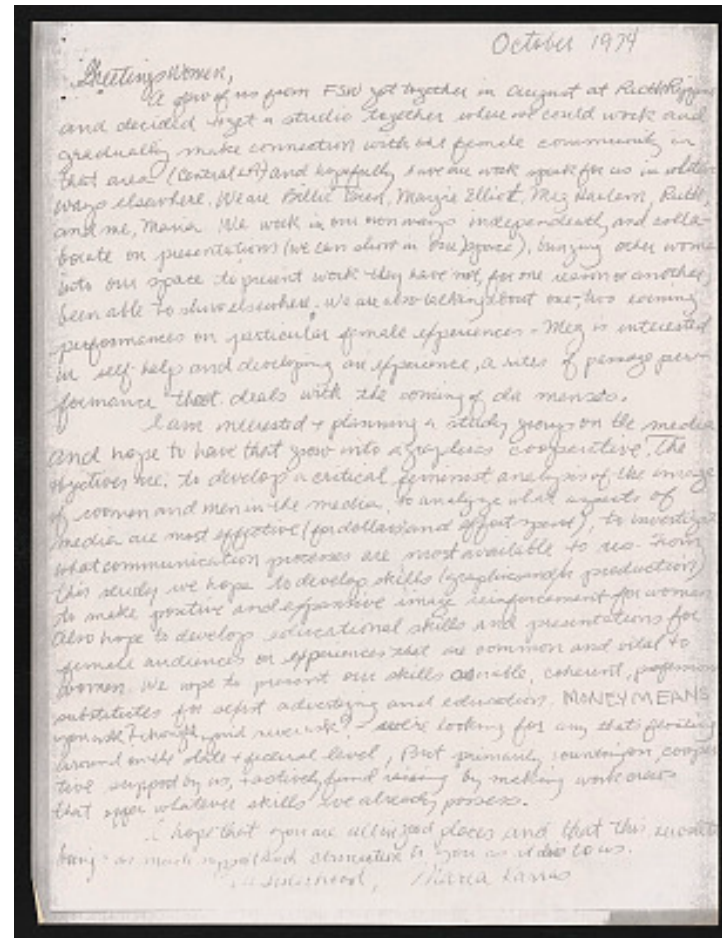 October 1974
Greetings Women,
A few of us from FSW got together in August at Ruth
and decided to get a studio together where we could work and
gradually make connection with the female community in
that area (central LA) and hopefully have our work speak for us in
ways elsewhere. We are Billie Margie Elliot, Meg Ruth,
and me, Maria. We work in our own ways independently and colla-
borate on presentations (we can show in our space), bringing other
into our space to present work they have not, for one reason or another,
been able to show elsewhere. We are also talking about one-two evening
performances on particular female experiences - Meg is interested
in self-help and developing an experience, a rites of passage per-
formance that deals with the coming of da menses.
I am interested + planning a study group on the media
and hope to have that grow into a graphics cooperative. The
objectives are: to develop a critical feminist analysis of the image
of women and men in the media, to analyze what aspects of
media are most effective (for dollars and effort spent), to
what communication processes are most available to us. From
this study we hope to develop skills (graphics and/or production)
to make positive and expansive image reinforcement for women
Also hope to develop educational skills and presentations for
female audiences on experiences that are common and vital to
women. We hope to present our skills as viable, coherent,
substitutes for sexist advertising and education. MONEY MEANS
you ask? we're looking for any that's floating
around on the state + federal level, But primarily
tive support by us, + actively fund raising by making work crews
that offer whatever skills we already possess.
I hope that you are all in good places and that this
being as much support and to you as it does to us.
in sisterhood, Maria Karras